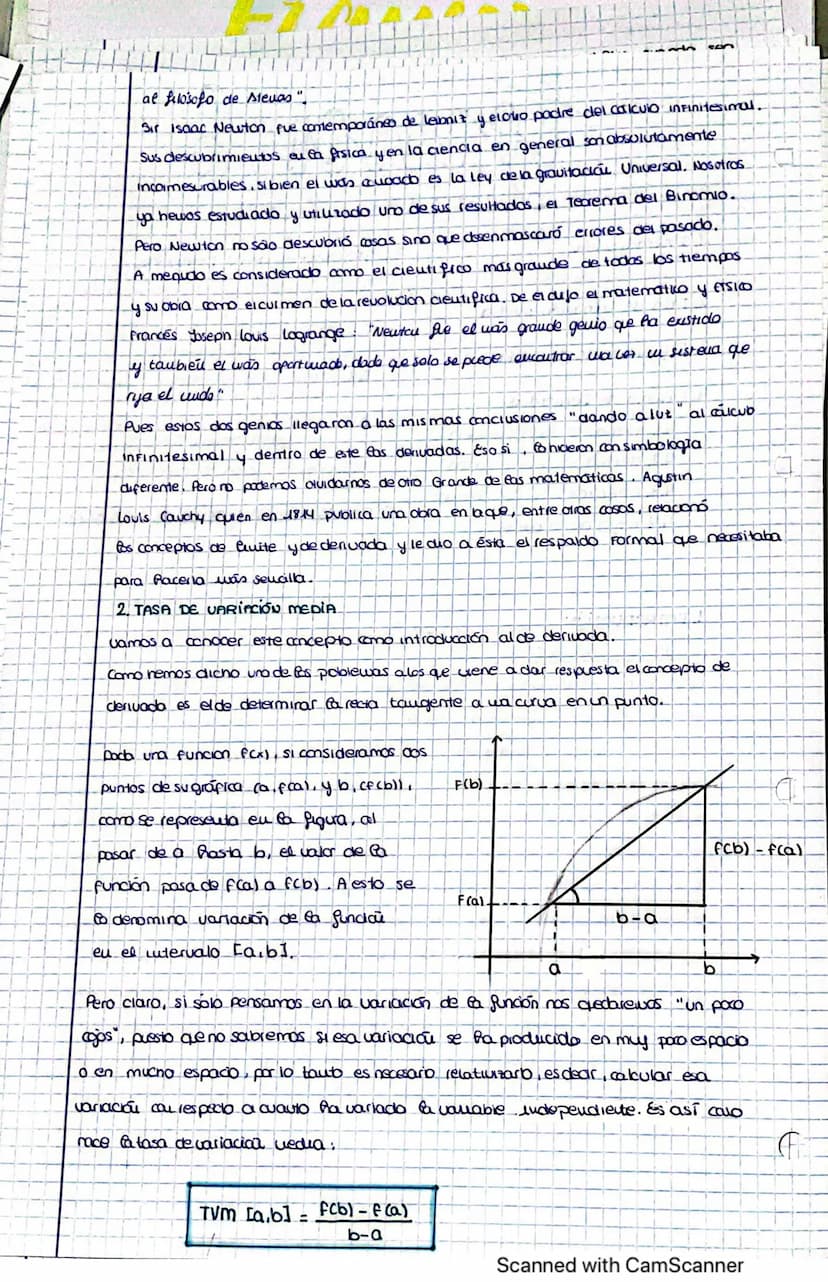 al filósofo de Atenas".
Sir Isaac Newton fue contemporáneo de Leibniz y el otro padre del cálculo infinitesimal.
Sus descubrimientos en la física y en la ciencia en general son absolutamente
incomesurables, si bien el más es la Ley de la gravitación Universal. Nosotros
ya hemos estudiado y utilizado uno de sus resultados, el Teorema del Binomio.
Pero Newton no sólo descubrió cosas sino que desenmascaró errores del pasado.
A menudo es considerado como el científico más grande de todos los tiempos
y su obra como el culmen de la revolución científica. De él dijo el matemático y físico
francés Joseph Louis Lagrange: "Newton fue el más grande genio que ha existido
y también el más afortunado, dado que solo se puede encontrar una vez un sistema que
rija el mundo"
Pues estos dos genios llegaron a las mismas conclusiones "dando a luz" al cálculo
infinitesimal y dentro de este las derivadas. Eso si, lo hicieron con simbología
diferente. Pero no podemos olvidarnos de otro Grande de las matemáticas, Agustin
Louis Cauchy, quien en 1814 publica una obra en la que, entre otras cosas, relacionó
los conceptos de límite y de derivada y le dio a ésta el respaldo formal que necesitaba
para hacerla más sencilla.
2. TASA DE VARIACIÓN MEDIA
Vamos a conocer este concepto como introducción al de derivada.
Como hemos dicho uno de los problemas a los que viene a dar respuesta el concepto de
derivada es el de determinar la recta tangente a una curva en un punto.
Dada una función f(x), si consideramos dos
puntos de su gráfica (a, f(a), y b, (f(b)),
como se representa en la figura, al
pasar de a hasta b, el valor de la
función pasa de f(a) a f(b). A esto se
lo denomina variación de la función
en el intervalo [a,b].
F(b)
f(b) - f(a)
F(a)
b-a
a
b
Pero claro, si sólo pensamos en la variación de la función nos quedaremos "un poco
cojos", puesto que no sabremos si esa variación se ha producido en muy poco espacio
o en mucho espacio, por lo tanto es necesario relativizarlo, es decir, calcular esa
variación con respecto a cuanto ha variado la variable independiente. Es así como
nace la tasa de variación media:
TVM [a,b] = f(b) - f(a)
b-a
Scanned with CamScanner